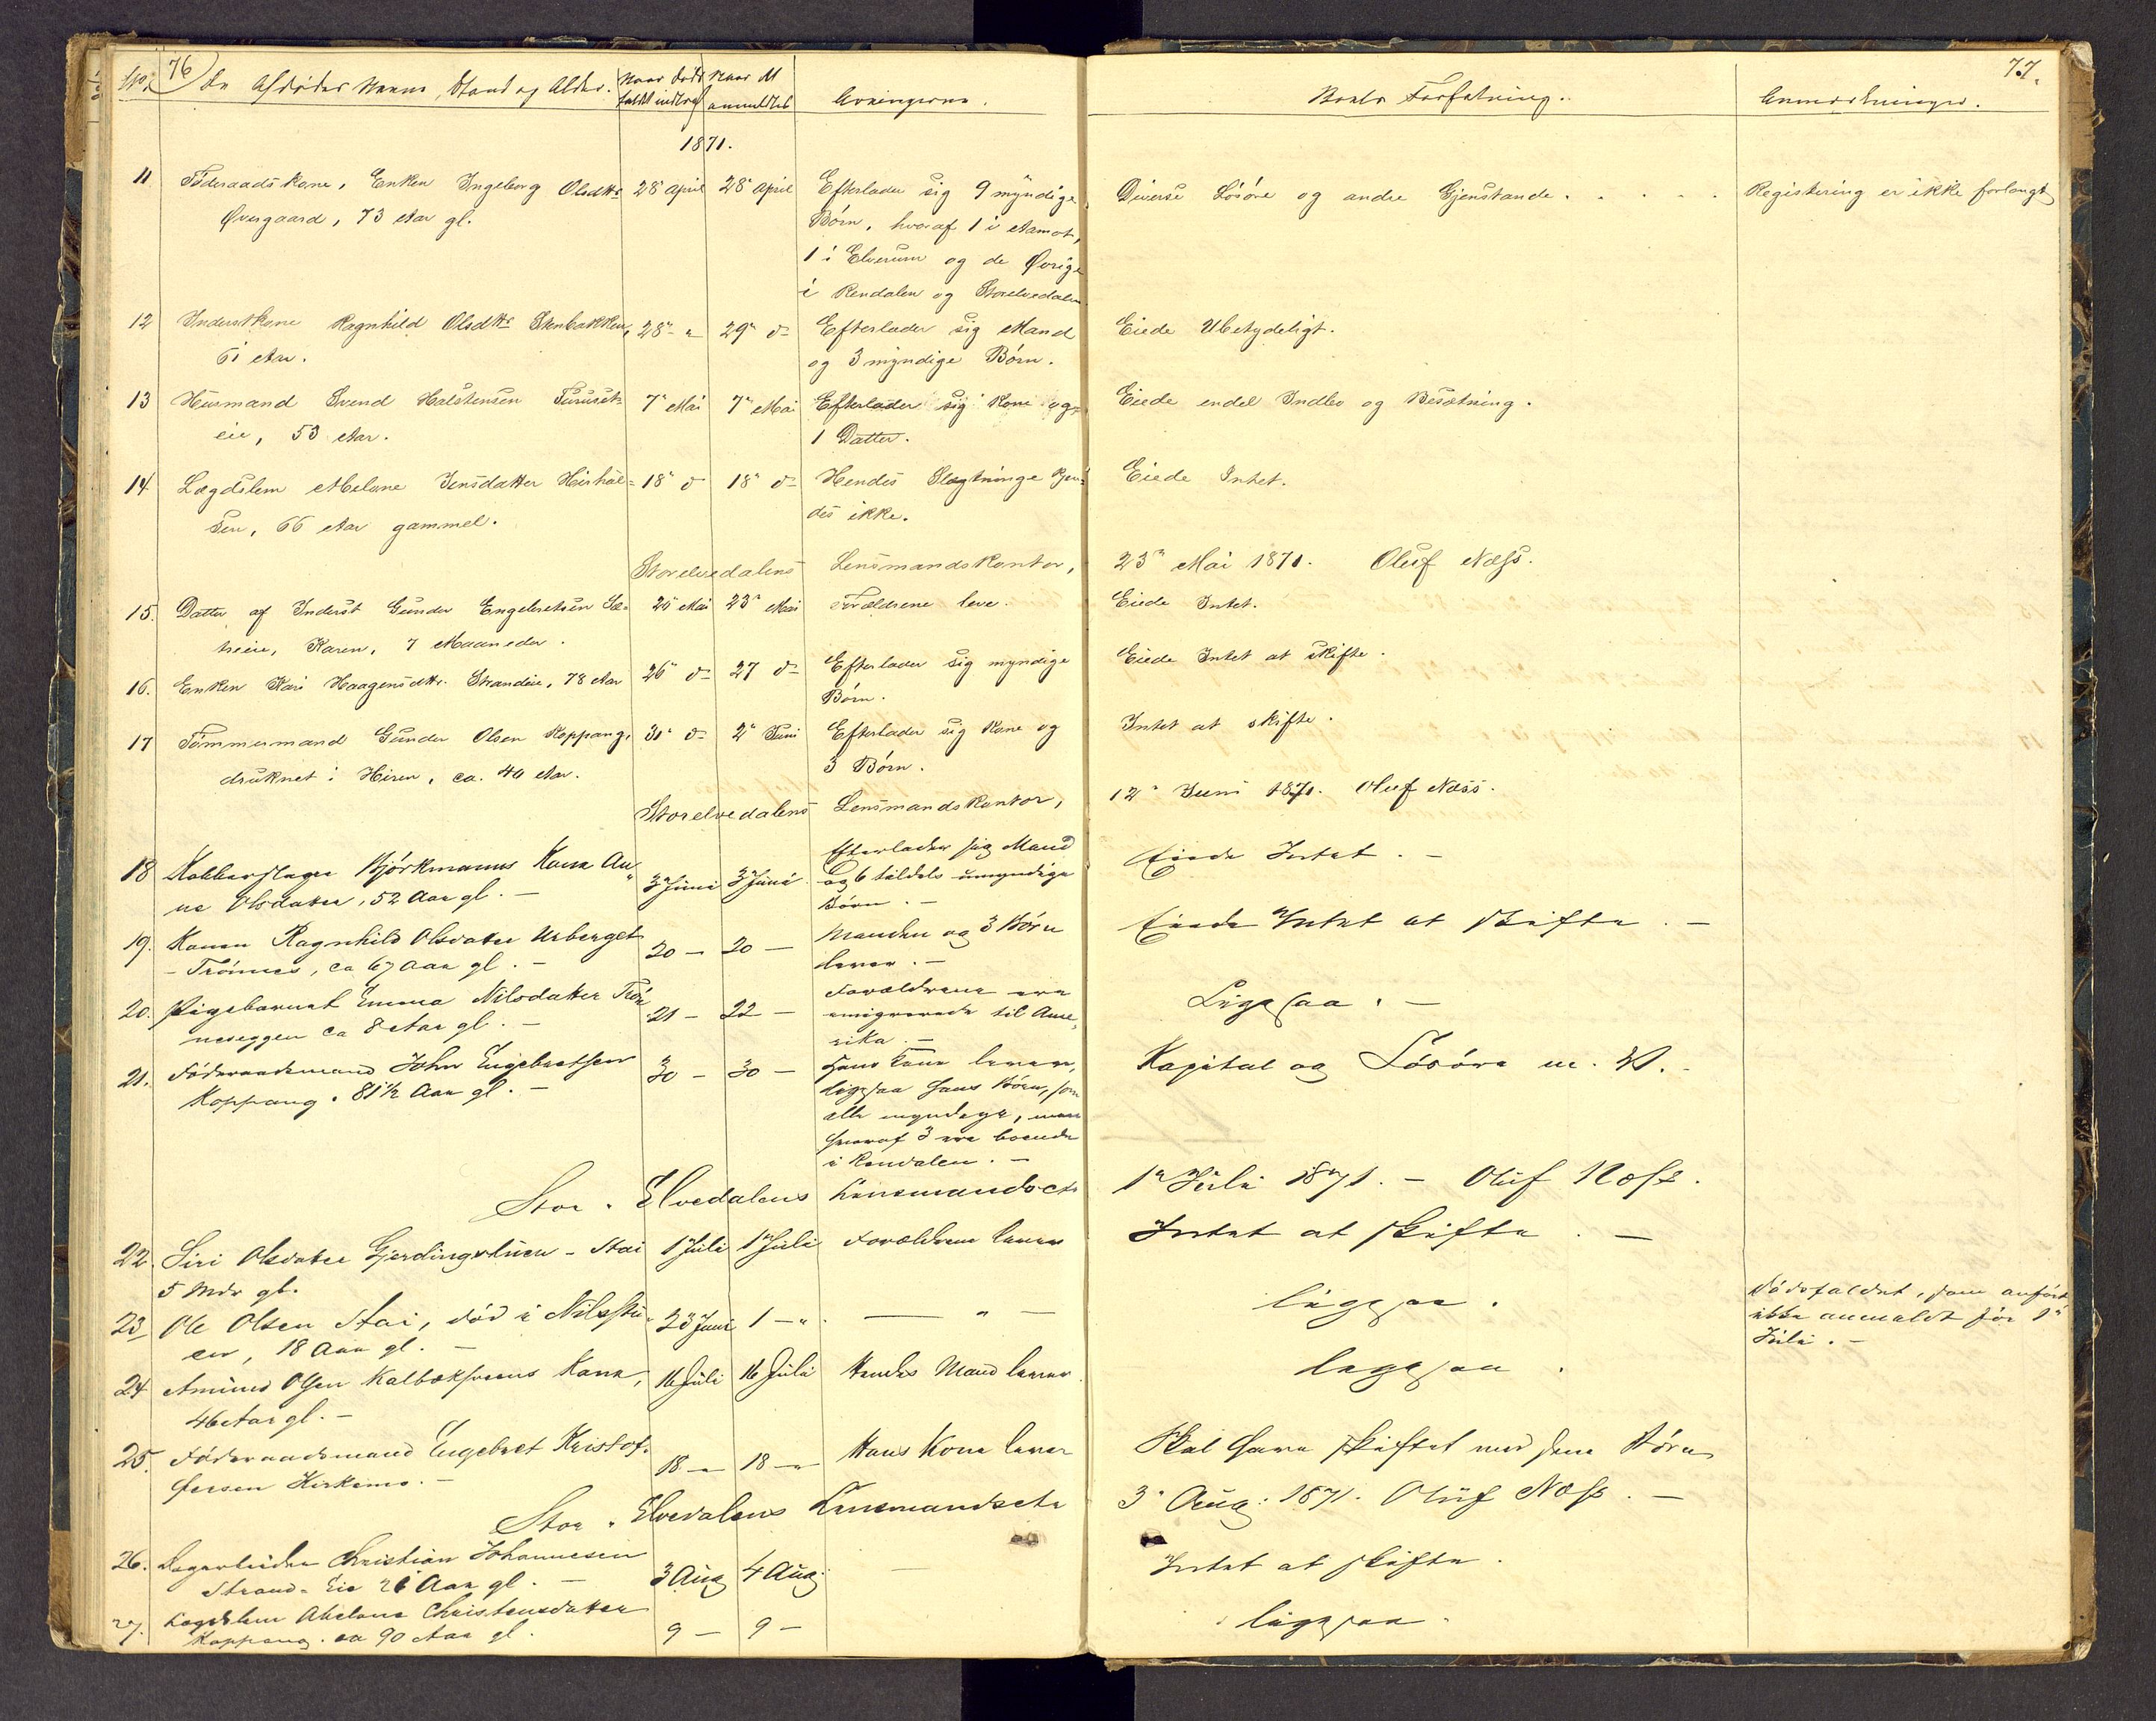 76
No. Den Afdødes Navn, Stand og Alder. Naar Dødsfaldet indtraf Naar det anmeldtes Arvingerne. Boets Forfatning. Anmærkninger. 77.
1871.
11 Föderaadskone, Enken Ingeborg Olsdtr 28" April 28" April Efterlader sig 9 myndige Diverse Lösöre og andre Gjenstande. . . . . . Registering er ikke forlangt
Øvergaard, 73 Aar gl. Börn, hvoraf 1 i Aamot,
1 i Elverum og de Øvrige
i Rendalen og Storelvedalen
12 Inderstkone Ragnhild Olsdtr Stenbakken, 28" " 29" d- Efterlader sig Mand Eiede Ubetydeligt.
61 Aar. og 3 myndige Börn.
13 Husmand Svend Halstensen Furuset- 7" Mai 7" Mai Efterlader sig Kone og Eiede endel Indbo og Besætning.
eie, 53 Aar. 1 Datter.
14 Lægdslem Abelone Jensdatter 18" d- 18" d- Hendes Slægtninge kjen- Eiede Intet.
sen, 66 Aar gammel. des ikke.
Storelvedalens Lensmandskontor, 23" Mai 1871. Oluf Næss.
15. Datter af Inderst Gunder Engebretsen Sæ- 25" Mai 25" Mai Forældrene leve. Eiede Intet.
treie, Karen, 7 Maaneder.
16. Enken Kari Haagensdtr. Strandeie, 78 Aar 26" d- 27 d- Efterlader sig myndige Eiede Intet at skifte.
Börn.
17 Tömmermand Gunder Olsen Koppang, 30" d- 2" Juni Efterlader sig Kone og Intet at skifte.
druknet i Hiren, ca. 40 Aar. 3 Börn.
Storelvedalens Lensmandskontor, 12" Juni 1871. Oluf Næss.
18 Kobberslager Björkmanns Kone An- 3 Juni 3 Juni Efterlader sig Mand Eiede Intet. -
ne Olsdatter, 52 Aar gl. - og 6 tildels umyndige
Börn. -
19. Konen Ragnhild Olsdatter Urberget 20 - 20 - Manden og 3 Börn Eiede Intet at skifte. -
- Trönnes, ca 67 Aar gl. - lever. -
20. Pigebarnet Emma Nilsdatter Trön 21 - 22 - Forældrene ere Ligesaa. -
neseggen ca 8 Aar gl. - emigrerede til Ame-
rika. -
21. Föderaadsmand John Engebretsen 30 - 30 - Hans Kone lever, Kapital og Lösöre m. V. -
Koppang. 81½ Aar gl. - ligesaa hans Börn, som
alle myndige, men
hvoraf 3 ere boende
i Rendalen. -
Stor-Elvedalens Lensmandsctr 1" Juli 1871. - Oluf Næss.
22. Siri Olsdatter Gjerdingstuen - Stai 1 Juli 1" Juli Forældrene lever Intet at skifte. -
5 Mdr gl.
23 Ole Olsen Stai, död i Nilsstu- 23 Juni 1 - " - " - ligesaa. Dödsfaldet, som anfört
en, 18 Aar gl. - ikke anmeldt för 1"
Juli. -
24 Amund Olsen Kalbækhvens Kone, 16 Juli 16 Juli Hendes Mand lever. ligesaa.
46 Aar gl. -
25. Föderaadsmand Engebret Kristof- 18 - " 18 - " Hans Kone lever Skal have skiftet med sine Börn
fersen Kirkemo. -
Stor-Elvedalens Lensmandsctr 3" Aug: 1871. Oluf Næss. -
26. Dagarbeider Christian Johannesen 3 Aug 4 Aug: - Intet at skifte.
Strand-Eie 26 Aar gl. -
27. Lægdslem Abelone Christensdatter 9 - 9 - ligesaa.
Koppang. ca 90 Aar gl.